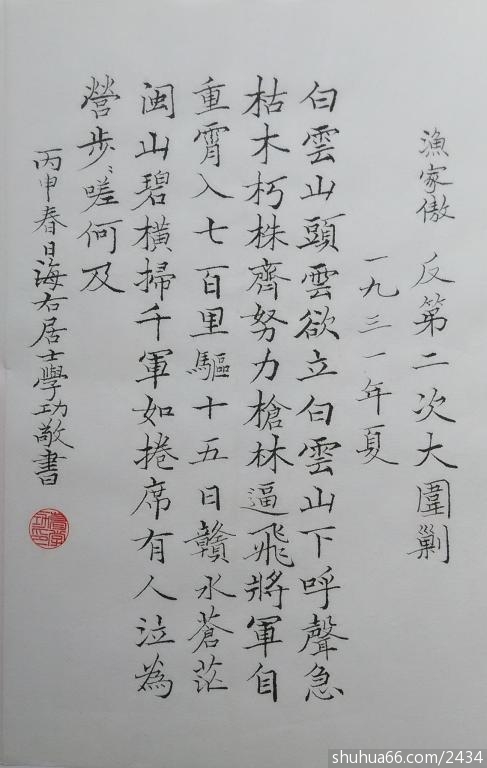 漁家傲 反第二次大圍剿
一九三一年夏
白雲山頭雲欲立白雲山下呼聲急
枯木朽株齊努力槍林逼飛將軍自
重霄入七百里驅十五日贛水蒼茫
閩山碧橫掃千軍如捲席有人泣為
營步〻嗟何及
丙申春日海右居士學功敬書
shuhua66.com/2434